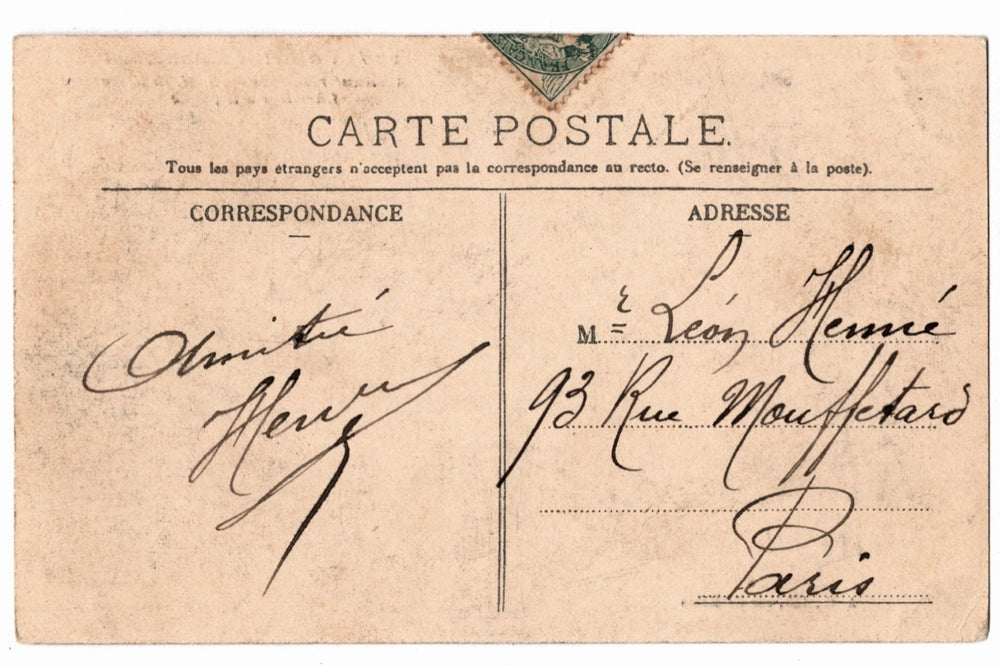 FRANÇAIS
CARTE POSTALE.
Tous les pays étrangers n'acceptent pas la correspondance au recto. (Se renseigner à la poste).
CORRESPONDANCE
Amitié
ADRESSE
Mr Léon
93 Rue Mouffetard
Paris